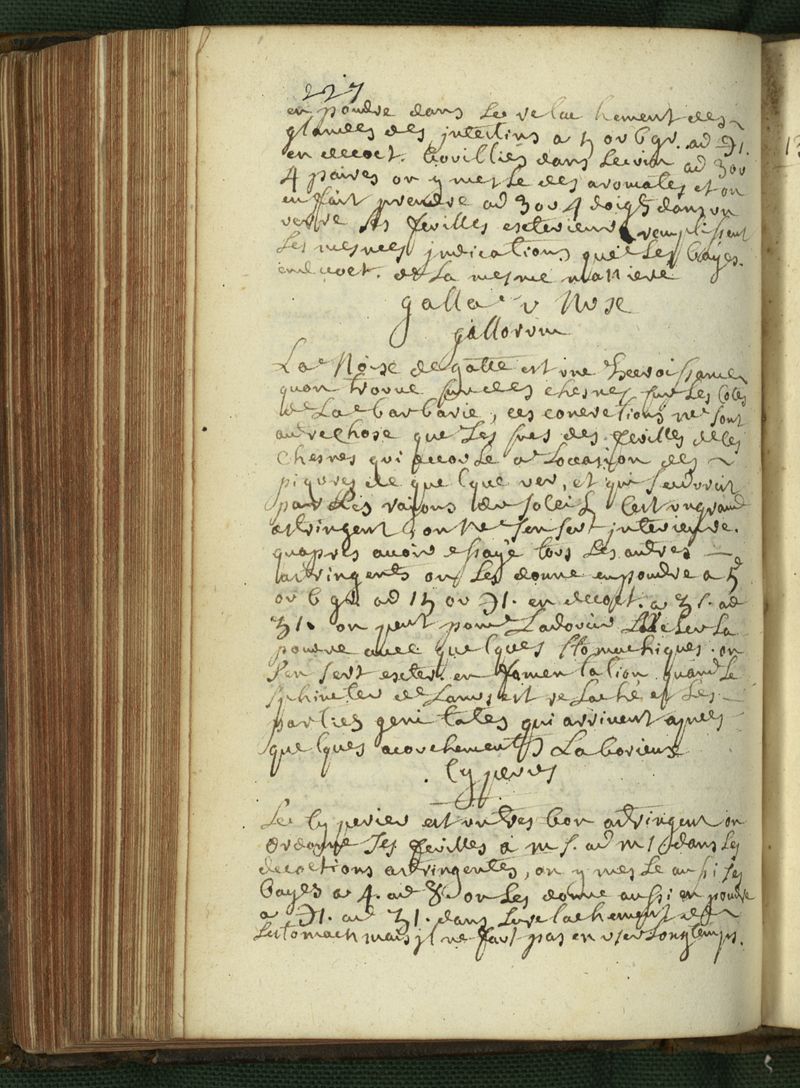 227
en poudre dans le relachement des
glandes des intestins a ʒ ou 6 gr. ad ℈1.
en decoct. bovillies dans le vin ad 3 ou
4 paires on y mesle des aromates et on
en fait prendre ad 3 ou 4 doigts dans un
verre les fevilles exterieur remplissent
Les mesmes indications que Les bayes.
en decoct. de La mesme maniere
galla v Nux
gallorum
La Noix de galle est une
quon trouve sur des chesnes sur Les Cotes
de La barbarie, ces concretions ne sont
autre Chose que Les sucs des fevilles de ces
Chesnes qui decoule a Loccasion des
piqures de quelque ver, et que sedurcit
par Les raions du soleil Cest un grand
astringent, on ne sen sert interieure.
quapres avoir essayé tous Les autres
astringents on Les donne en poudre a 5
ou 6 gr. ad 15 ou ℈1. en decoct. a ʒ s. ad
ʒ1. on peut pour Ladoucir La
poudre avec quelques stomachiques. on
sen sert exter. en fomentation quand Le
sphincter de Lanus est relaché et Les
parties genitales qui arrivent apres
quelques acouchements Laborieux
Cyperus
Le Cyperier est un tres bon astringent on
ordonne ses fevilles a m s. ad m 1 dans Les
decoctions astringentes, on y mesle aussi ses
bayes a 4. ad 8. on Les donne aussi en poudre
a ℈1. ad ʒ1. dans Le relachement de
Lestomach mais il ne faut pas en user Longtemps.